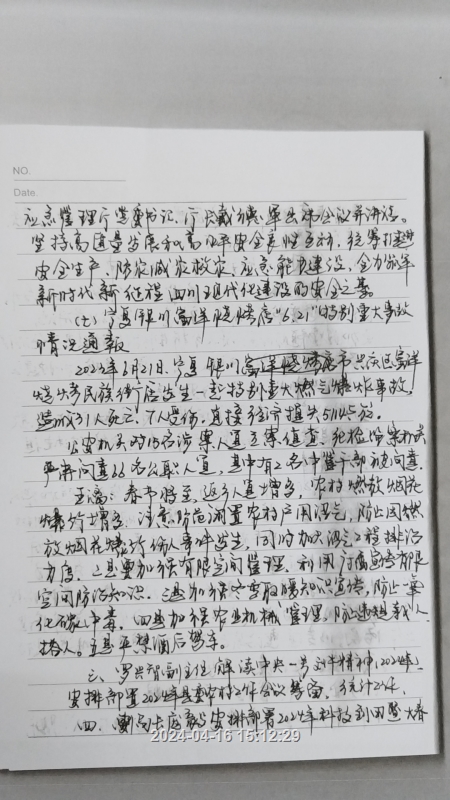 NO.
Date.
应急管理厅党委书记、厅长戴 军出席会议并讲话。
坚持高质量发展和高水平安全良性互动，统筹打造
安全生产、防灾减灾救灾、应急能力建设，全力筑牢
新时代新征程四川现代化建设的安全之基。
（七）宁夏银川富洋烧烤店“6.21”特别重大事故
情况通报
2023年6月21日，宁夏银川 市兴庆区富洋
烧烤民族街店发生一起特别重大燃气爆炸事故，
造成31人死亡、7人受伤，直接经济损失5114.5万。
公安机关对15名涉案人员立案侦查，纪检监察机关
严肃问责 名公职人员，其中有2名中管干部被问责。
王 ：春节将至，返乡人员增多，农村燃放烟花
爆竹增多，注意防范闲置农村户用沼气，防止因燃
放烟花爆竹伤人事件发生，同时加大沼气工程排查
力度。二是要加强有限空间管理，利用 宣传有限
空间防治知识。三是加强 取暖知识宣传，防止一氧
化碳中毒。四是加强农业机械管理，防止违规载人、
搭人。五是严禁酒后驾车。
三、罗共 副主任解读中央一号文件精神，2024年
安排部署2024年县委农村工作会议筹备，
四、 安排部署2024年科技
2024-04-16 15:12:29